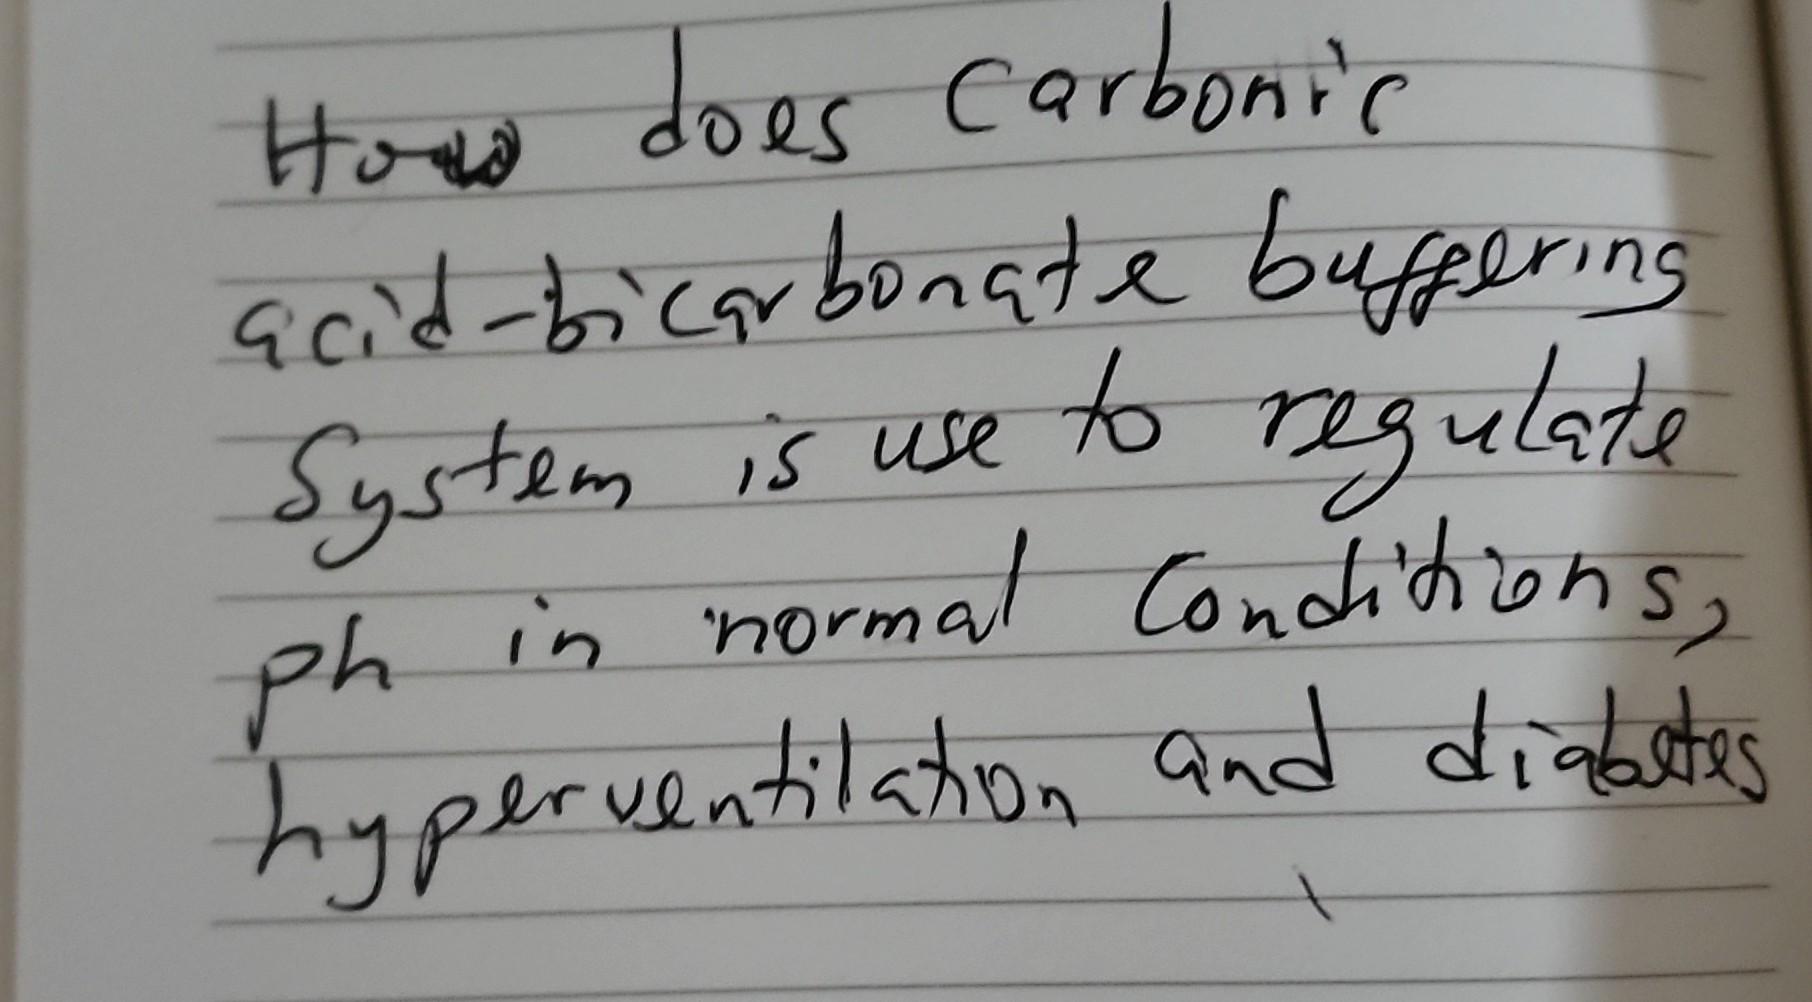 How does Carbonic
acid-bicarbonate buffering
System is use to regulate
ph in normal Conditions,
hyperventilation and diabetes